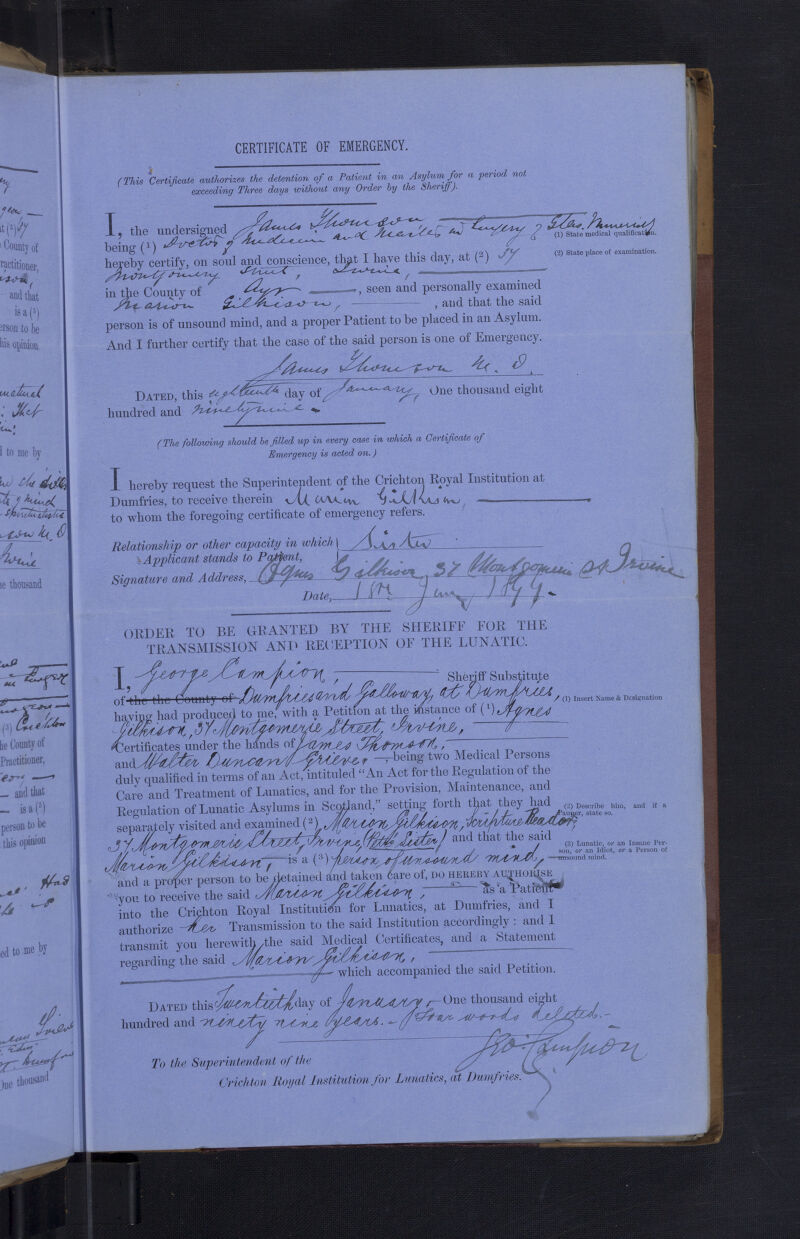 CERTIFICATE OF EMERGENCY.
(This Certificate authorizes the detention of a Patient in an Asylum for a period not
exceeding Three days without any Order by the Sheriff).
I, the undersigned James Thomson
being (1) Doctor of Medicine and Master in Surgery of Glas. University
(1) State medical qualification.
hereby certify, on soul and conscience, that I have this day, at (2) 37
(2) State place of examination.
Montgomery Street, Irvine,
in the County of Ayr, seen and personally examined
Marion Gilkison, and that the said
person is of unsound mind, and a proper Patient to be placed in an Asylum.
And I further certify that the case of the said person is one of Emergency.
James Thomson M. D.
DATED, this eighteenth day of January, One thousand eight
hundred and ninetynine
(The following should be filled up in every case in which a Certificate of
Emergency is acted on.)
I hereby request the Superintendent of the Crichton Royal Institution at
Dumfries, to receive therein Marion Gilkison,
to whom the foregoing certificate of emergency refers.
Relationship or other capacity in which
Applicant stands to Patient, Sister
Signature and Address, Agnes Gilkison 37 Montgomerie St Irvine
Date, 18th Jany 1899.
ORDER TO BE GRANTED BY THE SHERIFF FOR THE
TRANSMISSION AND RECEPTION OF THE LUNATIC.
I, George Campion, Sheriff Substitute
of the the County of Dumfries and Galloway, at Dumfries,
(1) Insert Name & Designation
having had produced to me, with a Petition at the instance of (1) Agnes
Gilkison, 37 Montgomerie Street, Irvine,
Certificates under the hands of James Thomson,
and Walter Duncan Grieve, being two Medical Persons
duly qualified in terms of an Act, intituled "An Act for the Regulation of the
Care and Treatment of Lunatics, and for the Provision, Maintenance, and
Regulation of Lunatic Asylums in Scotland," setting forth that they had
(2) Describe him, and if a Pauper, state so.
separately visited and examined (2), Marion Gilkison, Scripture Reader,
37 Montgomerie Street, Irvine, Sister and that the said
(3) Lunatic, or an Insane Person, or an Idiot, or a Person of unsound mind.
Marion Gilkison, is a (3) person of unsound mind,
and a proper person to be detained and taken care of, DO HEREBY AUTHORISE
you to receive the said Marion Gilkison, as a Patient
into the Crichton Royal Institution for Lunatics, at Dumfries, and I
authorize her Transmission to the said Institution accordingly: and I
transmit you herewith the said Medical Certificates, and a Statement
regarding the said Marion Gilkison,
which accompanied the said Petition.
DATED this Twentieth day of January, One thousand eight
hundred and ninety nine years. - Four words deleted. -
Geo. Campion
To the Superintendent of the
Crichton Royal Institution for Lunatics, at Dumfries.